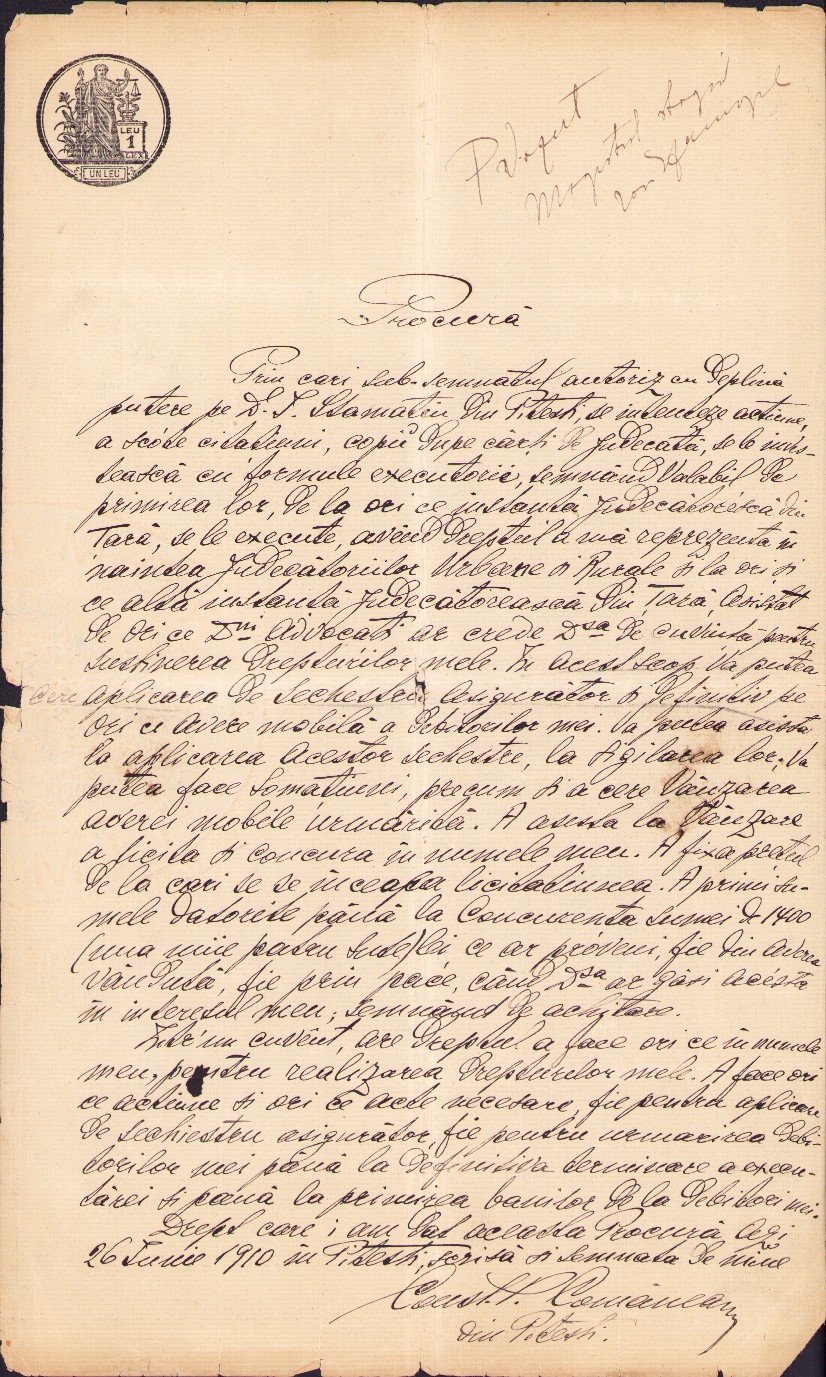 LEU
1
LEX
UN LEU
Procură
Prin cari sub-semnatul autoriz cu deplină
putere pe D. I. Stamatiu din Pitesti, se intenteze actiune,
a scóte citatiuni, copii dupe cărti de Judecată, se le inves-
tească cu formule executorii, semnând valabil de
primirea lor, de la ori ce instantă Judecătorescă din
Tară, se le execute, avênd dreptul a mă reprezenta în
naintea Judecătoriilor Urbane si Rurale si la ori si
ce altă instantă Judecătorească din Tară, Asistat
de ori ce Dni Advocati ar crede Dsa de cuviintă pentru
sustinerea drepturilor mele. In acest scop va putea
cere aplicarea de sechestru asigurător si definitiv pe
ori ce avere mobilă a debitorilor mei. Va putea asista
la aplicarea acestor sechestre, la sigilarea lor; Va
putea face Somatiuni, precum si a cere Vânzarea
averei mobile urmărită. A asista la Vânzare
a licita si concura în numele meu. A fixa pretul
de la cari se se înceapă licitatiunea. A primi su-
mele datorite până la Concurenta sumei de 1400
(una miie patru sute) lei, ce ar proveni, fie din averea
vândută, fie prin pace, când Dsa ar găsi acésta
în interesul meu; semnând de achitare.
Intr'un cuvênt, are dreptul a face ori ce în numele
meu, pentru realizarea drepturilor mele. A face ori
ce actiune si ori ce acte necesare, fie pentru aplicare
de sechiestru asigurător, fie pentru urmarirea debi-
torilor mei până la definitiva terminare a execu-
tărei si până la primirea banilor de la debitori mei.
Drept care i am dat aceasta Procură azi
26 Iunie 1910 în Pitesti, scrisă si semnata de mine
Const. P. Comăneanu
din Pitesti.